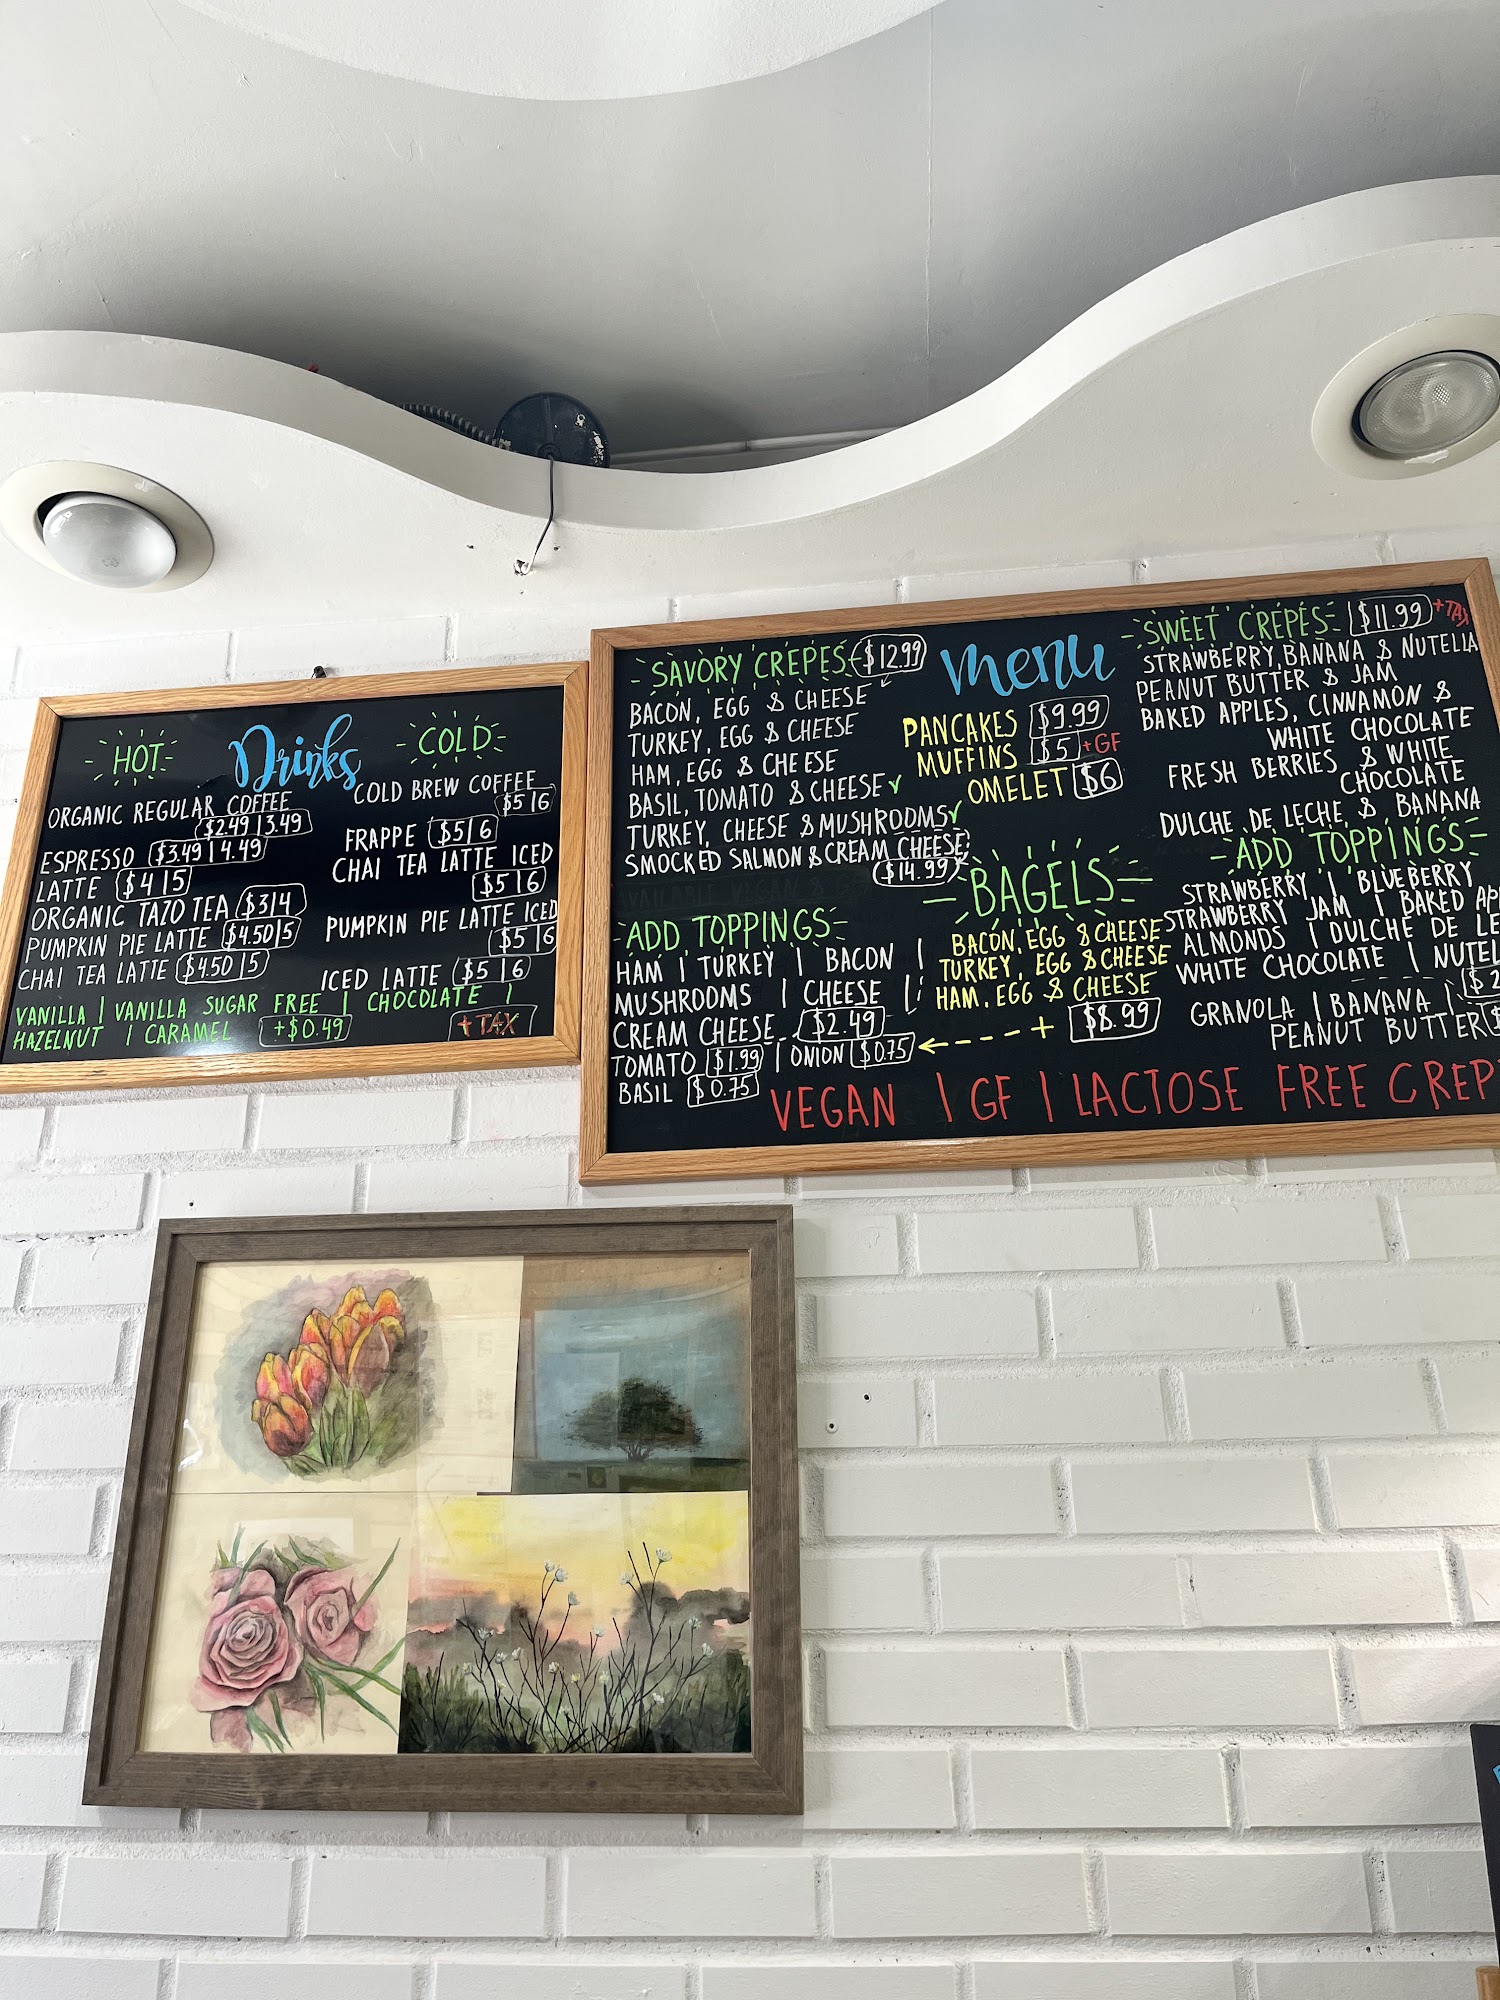 Drinks
HOT
ORGANIC REGULAR COFFEE
$2.49 | 3.49
ESPRESSO $3.49 | 4.49
LATTE $4 | 5
ORGANIC TAZO TEA $3 | 4
PUMPKIN PIE LATTE $4.50 | 5
CHAI TEA LATTE $4.50 | 5
COLD
COLD BREW COFFEE
$5 | 6
FRAPPE $5 | 6
CHAI TEA LATTE ICED
$5 | 6
PUMPKIN PIE LATTE ICED
$5 | 6
ICED LATTE $5 | 6
VANILLA | VANILLA SUGAR FREE | CHOCOLATE |
HAZELNUT | CARAMEL +$0.49
+ TAX
menu
SAVORY CREPES $12.99
BACON, EGG & CHEESE
TURKEY, EGG & CHEESE
HAM, EGG & CHEESE
BASIL, TOMATO & CHEESE ✓
TURKEY, CHEESE & MUSHROOMS ✓
SMOCKED SALMON & CREAM CHEESE
$14.99
ADD TOPPINGS
HAM | TURKEY | BACON |
MUSHROOMS | CHEESE |
CREAM CHEESE $2.49
TOMATO $1.99 | ONION $0.75
BASIL $0.75
PANCAKES $9.99
MUFFINS $5 +GF
OMELET $6
BAGELS
BACON, EGG & CHEESE
TURKEY, EGG & CHEESE
HAM, EGG & CHEESE
+ $8.99
SWEET CREPES $11.99 +TAX
STRAWBERRY, BANANA & NUTELLA
PEANUT BUTTER & JAM
BAKED APPLES, CINNAMON &
WHITE CHOCOLATE
FRESH BERRIES & WHITE
CHOCOLATE
DULCHE DE LECHE & BANANA
ADD TOPPINGS
STRAWBERRY | BLUEBERRY
STRAWBERRY JAM | BAKED AP
ALMONDS | DULCHE DE LE
WHITE CHOCOLATE | NUTEL
$2
GRANOLA | BANANA |
PEANUT BUTTER $
VEGAN | GF | LACTOSE FREE CREP